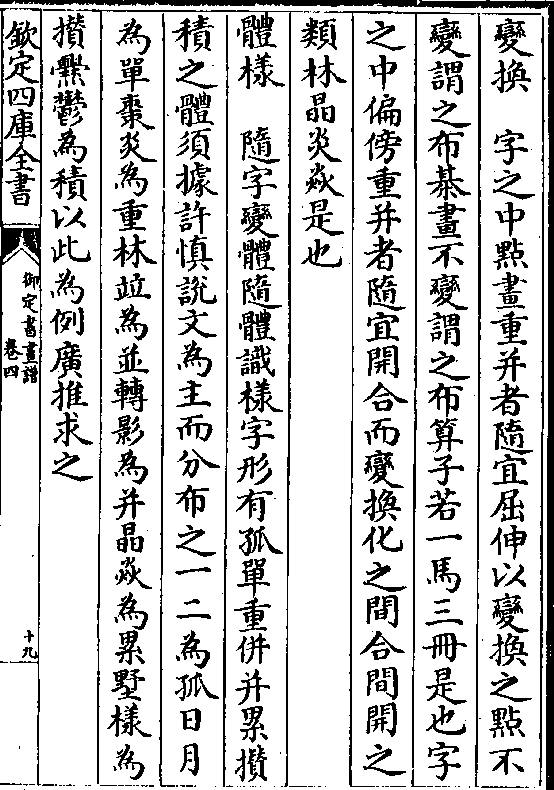 變換　字之中點畫重并者隨宜屈伸以變換之點不
變謂之布棊畫不變謂之布算子若一馬三冊是也字
之中偏傍重并者隨宜開合而變換化之間合間開之
類林晶炎焱是也
體様　隨字變體隨體識様字形有孤單重併并累攅
積之體須據許慎說文為主而分布之一二為孤日月
為單棗炎為重林竝為並轉影為并晶焱為累墅樣為
攅爨鬱為積以此為例廣推求之
欽定四庫全書
御定書畫譜
卷四
十九